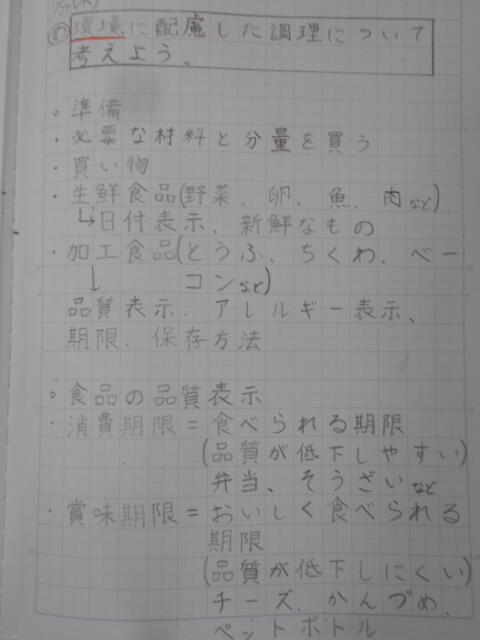 (木)
め 環境に配慮した調理について
考えよう。
○準備
・必要な材料と分量を買う
・買い物
・生鮮食品(野菜、卵、魚、肉など)
↳日付表示、新鮮なもの
・加工食品(とうふ、ちくわ、ベー
↓ コンなど)
品質表示、アレルギー表示、
期限、保存方法
○食品の品質表示
・消費期限=食べられる期限
(品質が低下しやすい)
弁当、そうざいなど
・賞味期限=おいしく食べられる
期限
(品質が低下しにくい)
チーズ、かんづめ、
ペットボトル